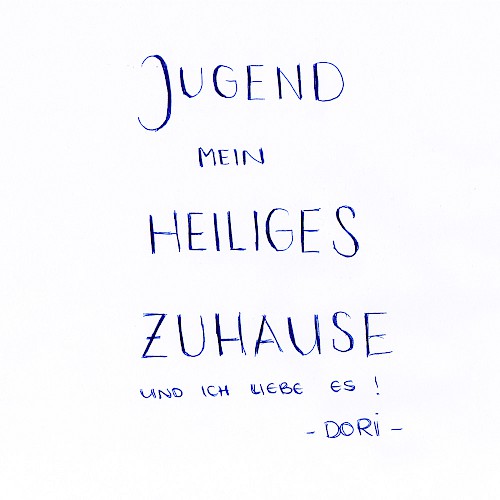 JUGEND
MEIN
HEILIGES
ZUHAUSE
UND ICH LIEBE ES !
- DORi -